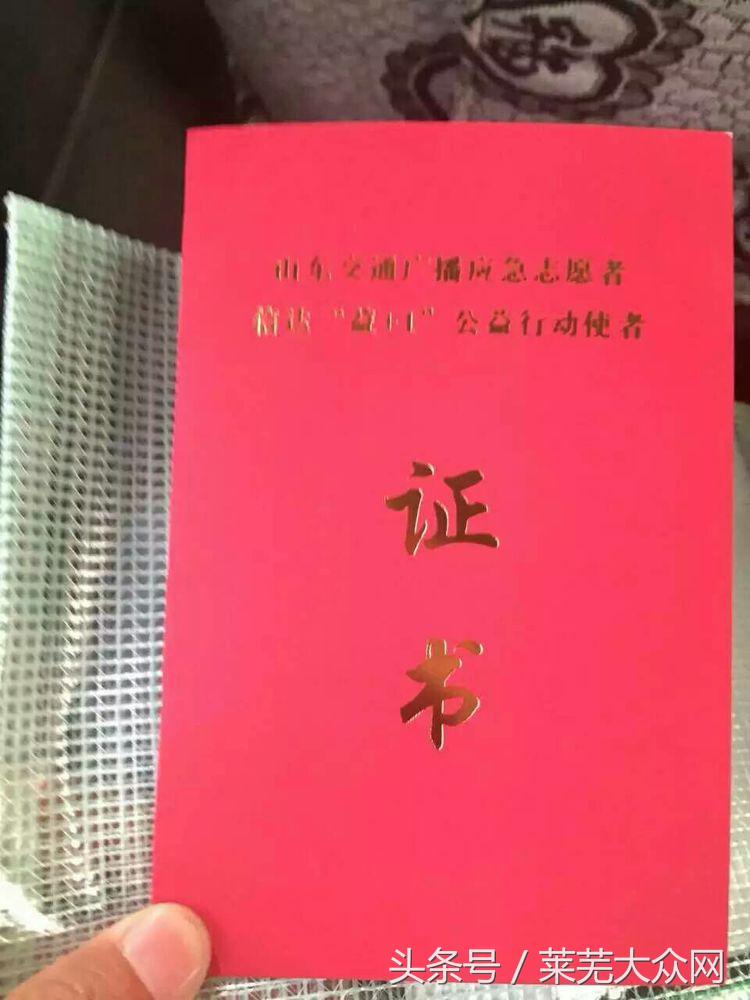 山东交通广播应急志愿者
公益行动使者
证
书
头条号 / 莱芜大众网